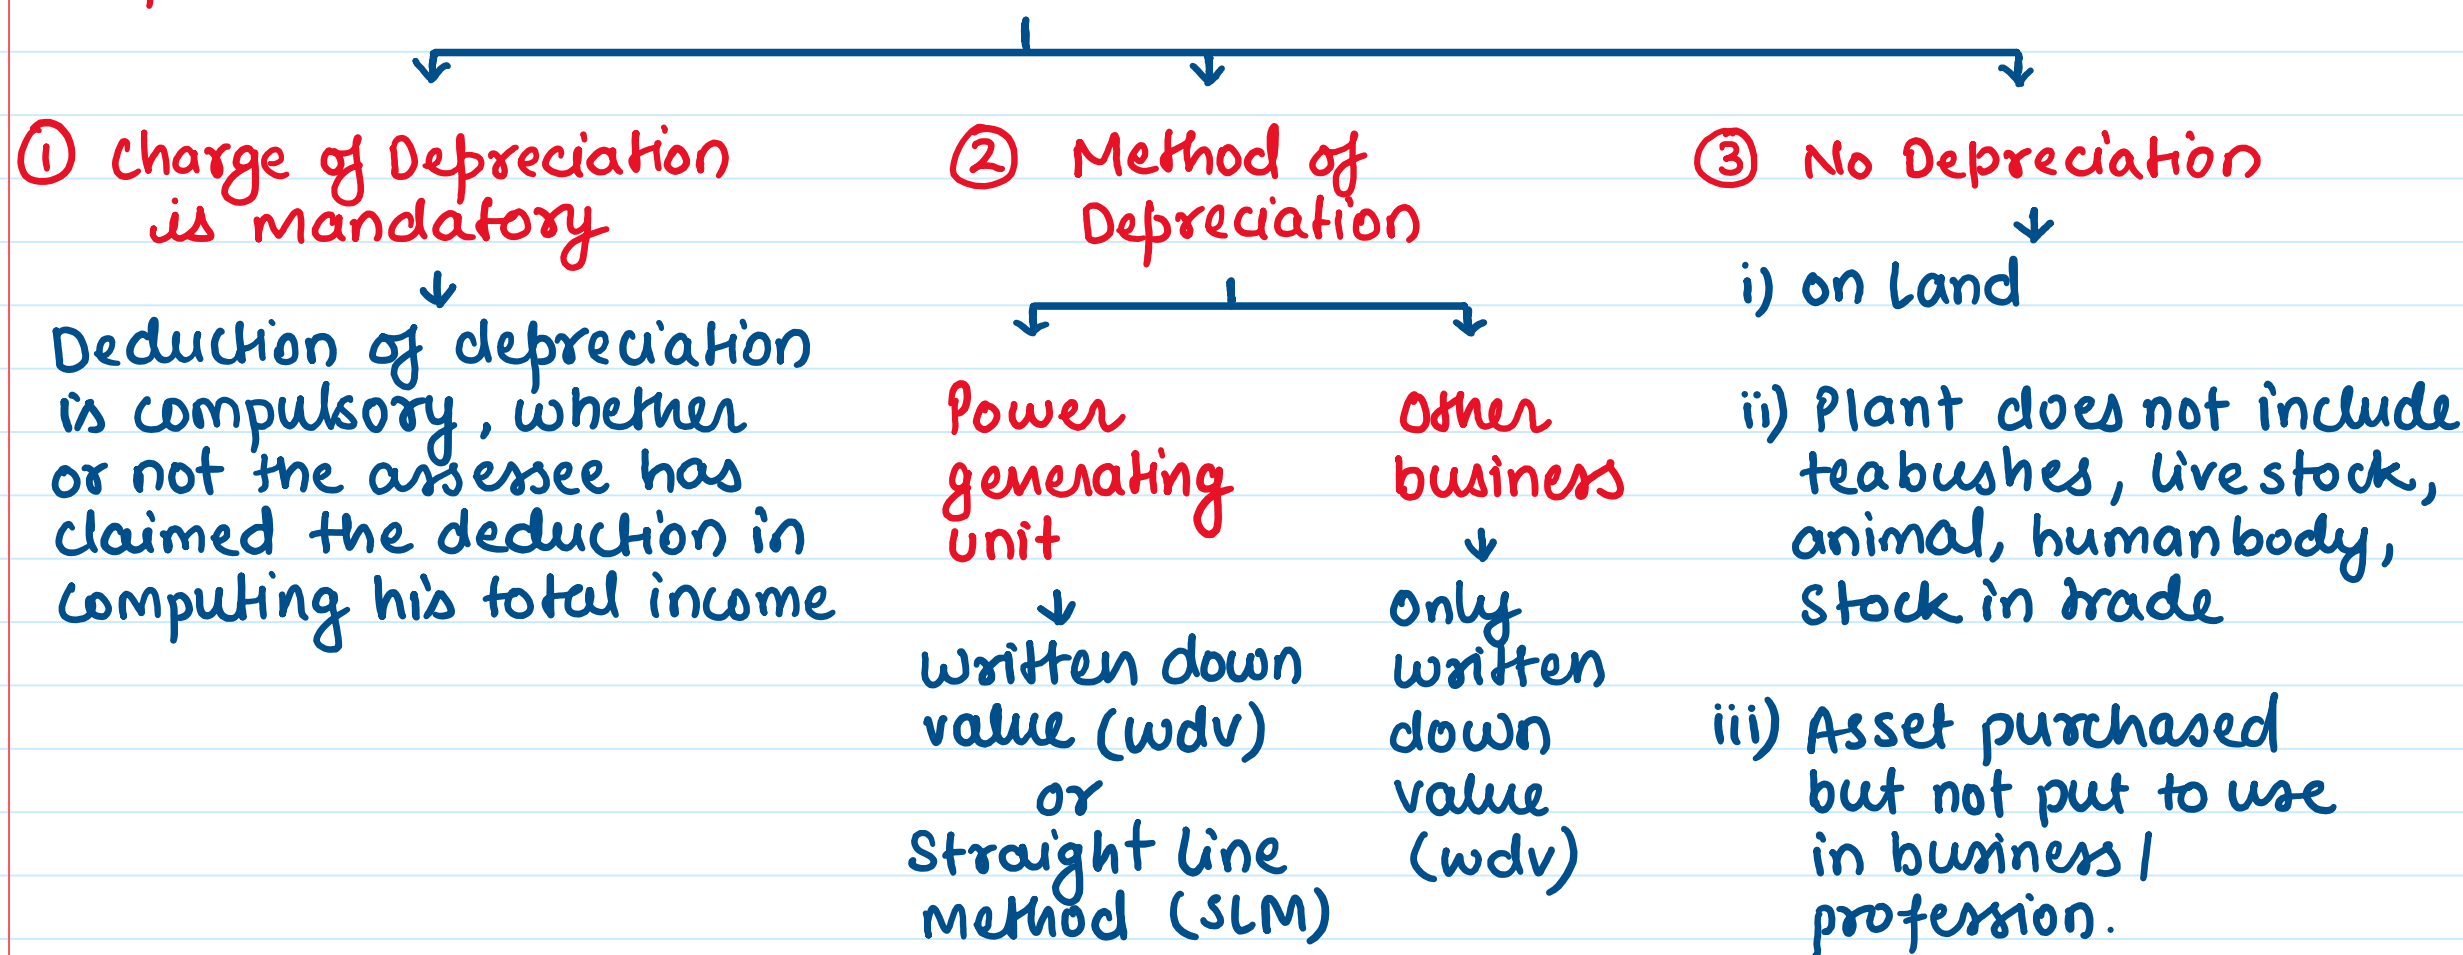 ① Charge of Depreciation
is mandatory
Deduction of depreciation
is compulsory, whether
or not the assessee has
claimed the deduction in
computing his total income
② Method of
Depreciation
Power
generating
unit
written down
value (wdv)
or
Straight line
Method (SLM)
Other
business
only
written
down
value
(wdv)
③ No Depreciation
i) on Land
ii) Plant does not include
teabushes, livestock,
animal, human body,
stock in trade
iii) Asset purchased
but not put to use
in business /
profession.